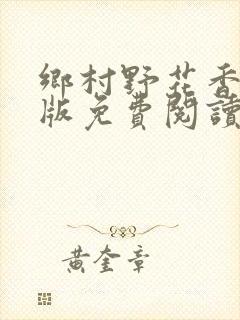 鄉村野花香
版免費閱讀
黃奎章